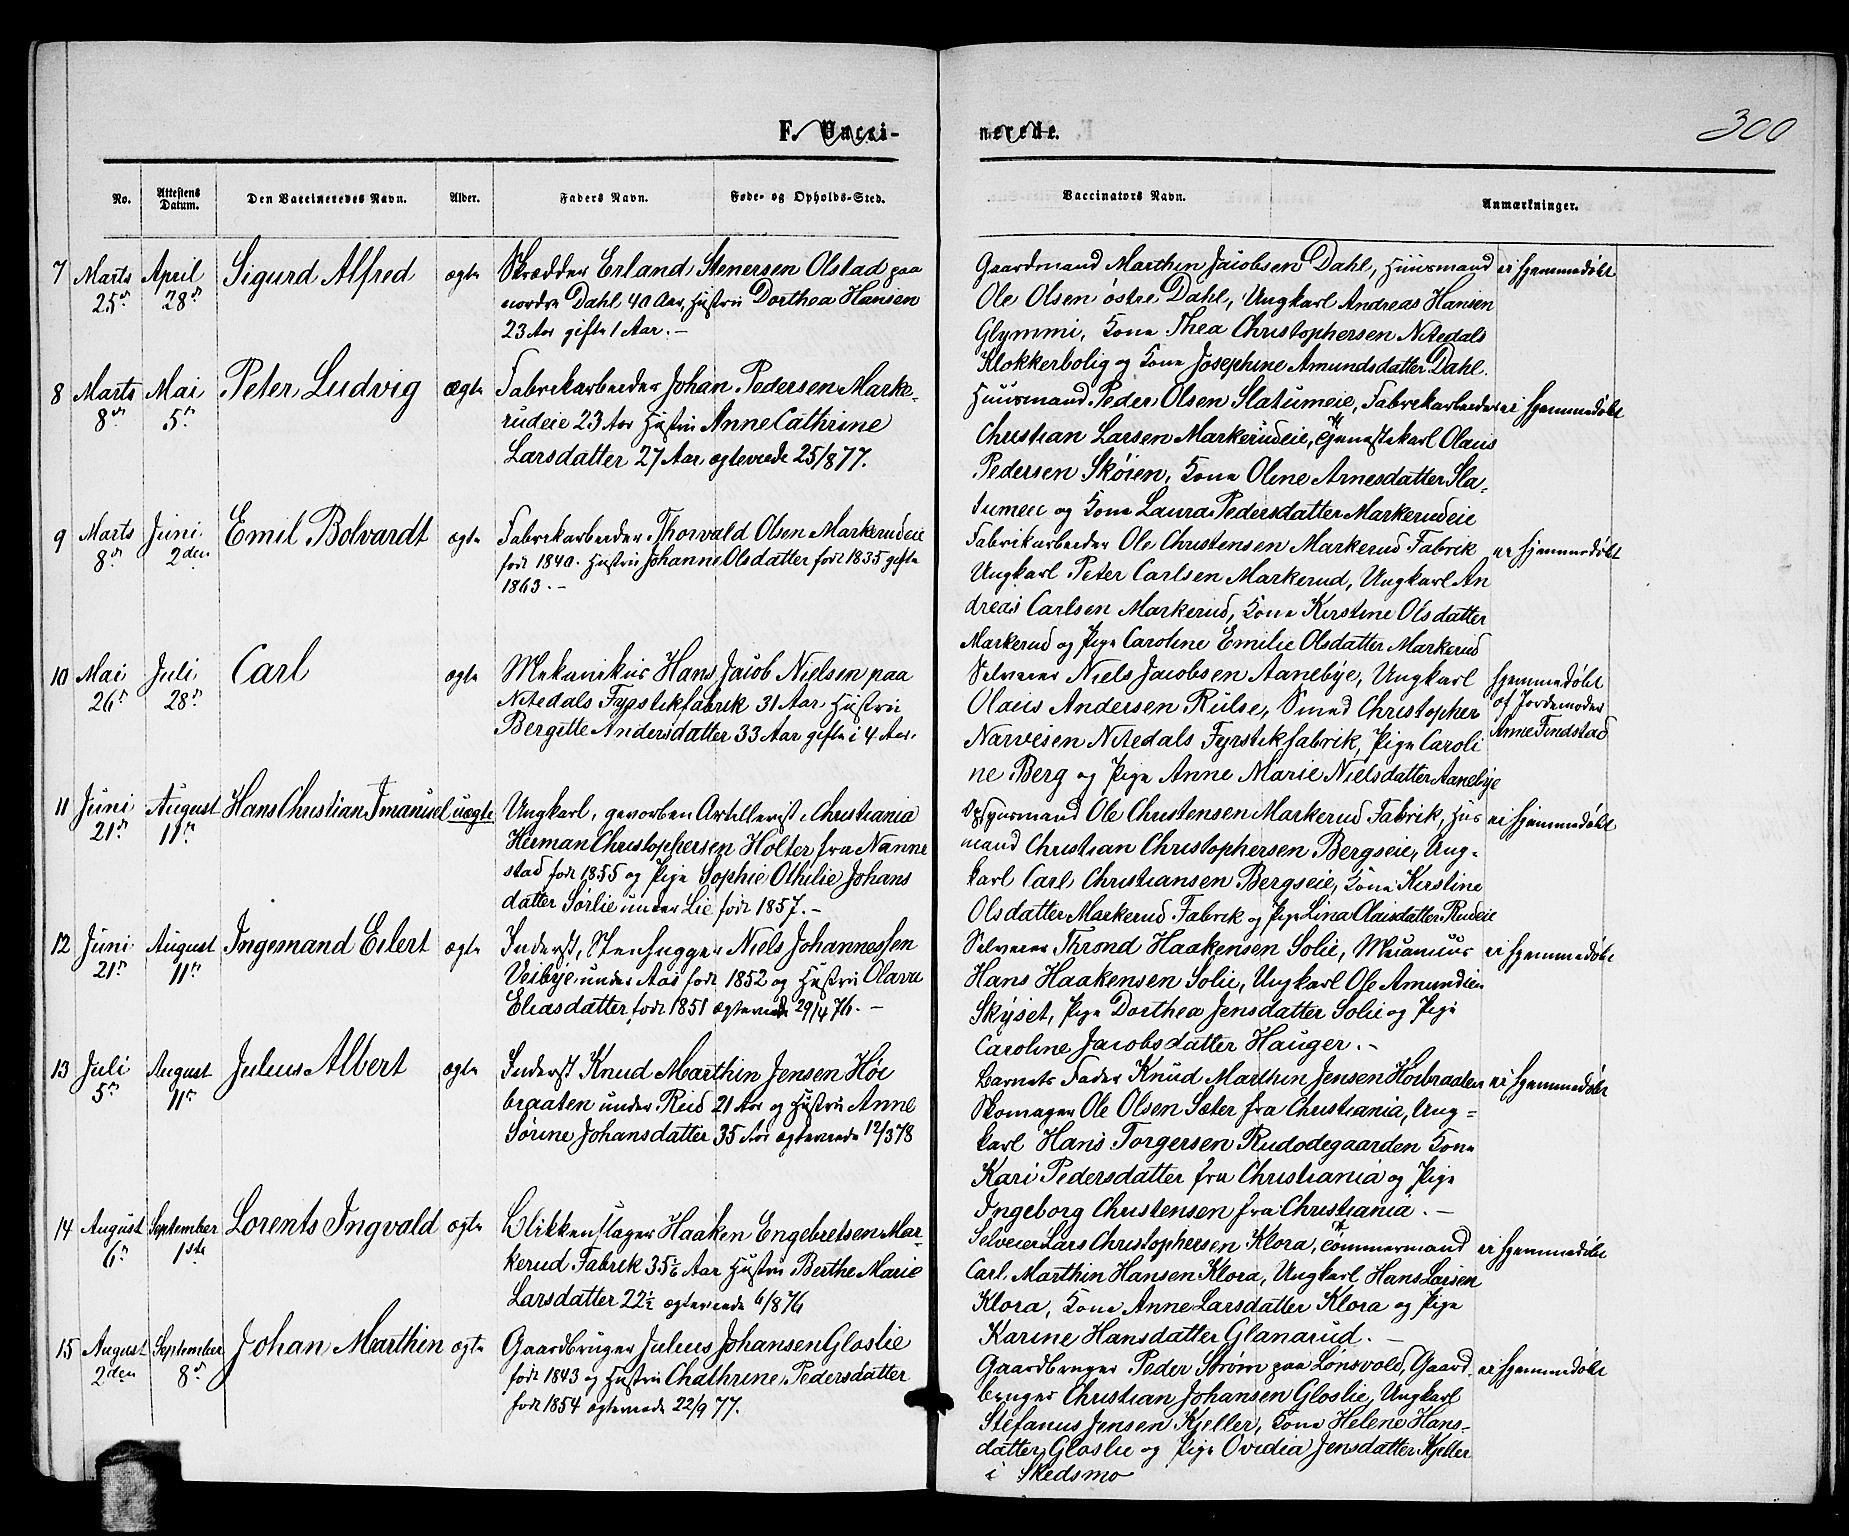 F. Vacci-
nerede.
300
No.
Attestens Datum.
Den Vaccineredes Navn.
Alder.
Faders Navn.
Føde- og Opholds-Sted.
Vaccinators Navn.
Anmærkninger.
7 Marts 25de April 28de Sigurd Alfred ægte
Skrædder Erland Stenersen Olstad paa
nordre Dahl 40 Aar, Hustru Dorthea Hansen
23 Aar gifte 1 Aar. –
Gaardmand Marthin Jacobsen Dahl, Huusmand
Ole Olsen østre Dahl, Ungkarl Andreas Hansen
Glymmi, Kone Thea Christophersen Nitedals
Klokkerbolig og Kone Josephine Amundsdatter Dahl.
ei hjemmedøbt
8 Marts 8de Mai 5te Peter Ludvig ægte
Fabrikarbeider Johan Pedersen Marke-
rudeie 23 Aar Hustru Anne Cathrine
Larsdatter 27 Aar ægteviede 25/8 77.
Huusmand Peder Olsen Slatumeie, Fabrikarbeider
Christian Larsen Markerudeie, Tjenestekarl Olaus
Pedersen Skøien, Kone Oline Arnesdatter Sla-
tumeie og Kone Laura Pedersdatter Markerudeie
ei hjemmedøbt
9 Marts 8de Juni 2den Emil Bolvardt ægte
Fabrikarbeider Thorvald Olsen Markerudeie
født 1840. Hustru Johanne Olsdatter født 1835 gifte
1863. –
Fabrikarbeider Ole Christensen Markerud Fabrik
Ungkarl Peter Carlsen Markerud, Ungkarl An
dreas Carlsen Markerud, Kone Kirstine Olsdatter
Markerud og Pige Caroline Emilie Olsdatter Markerud
ei hjemmedøbt
10 Mai 26de Juli 28de Carl ægte
Mekanikus Hans Jacob Nielsen paa
Nitedals Fyrstikfabrik 31 Aar Hustru
Bergitte Andersdatter 33 Aar gifte i 4 Aar.
Selveier Niels Jacobsen Aanebye, Ungkarl
Olaus Andersen Rulse, Smed Christopher
Narvesen Nitedals Fyrstikfabrik, Pige Caroli
ne Berg og Pige Anne Marie Nielsdatter Aanebye
hjemmedøbt
af Jordemoder
Anne Findstad
11 Juni 21de August 11te Hans Christian Imanuel uægte
Ungkarl, gevorben Artillerist i Christiania
Herman Christophersen Holter fra Nanne
stad født 1855 og Pige Sophie Othilie Johans
datter Sørlie under Lie født 1857. –
Opsynsmand Ole Christensen Markerud Fabrik, Hus
mand Christian Christophersen Bergseie, Ung-
karl Carl Christiansen Bergseie, Kone Kirstine
Olsdatter Markerud Fabrik og Pige Lina Olaisdatter Rudeie
ei hjemmedøbt
12 Juni 21de August 11te Ingemand Eilert ægte
Inderst, Stenhugger Niels Johannessen
Veibye under Aas født 1852 og Hustru Olava
Eliasdatter født 1851 ægteviede 29/4 76. –
Selveier Thrond Haakensen Solie, Mecanicus
Hans Haakensen Solie, Ungkarl Ole Amundsen
Skyset, Pige Dorthea Jensdatter Solie og Pige
Caroline Jacobsdatter Hauger. –
ei hjemmedøbt
13 Juli 5te August 11te Julius Albert ægte
Inderst Knud Marthin Jensen Høi
braaten under Rud 21 Aar og Hustru Anne
Sørine Johansdatter 35 Aar ægteviede 12/3 78
Barnets Fader Knud Marthin Jensen Høibraaten
Skomager Ole Olsen Sæter fra Christiania, Ung-
karl Hans Torgersen Rudødegaarden Kone
Kari Pedersdatter fra Christiania og Pige
Ingeborg Christensen fra Christiania. –
ei hjemmedøbt
14 August 6te September 1ste Lorents Ingvald ægte
Blikkenslager Haaken Engebretsen Mar-
kerud Fabrik 35 Aar Hustru Berthe Marie
Larsdatter 22½ ægteviede 6/8 76
Selveier Lars Christophersen Klora, Tømmermand
Carl Marthin Hansen Klora, Ungkarl Hans Larsen
Klora, Kone Anne Larsdatter Klora og Pige
Karine Hansdatter Glanarud. –
ei hjemmedøbt
15 August 2den September 8de Johan Marthin ægte
Gaardbruger Julius Johansen Gloslie
født 1843 og Hustru Chathrine Pedersdatter
født 1854 ægteviede 22/9 77.
Gaardbruger Peder Strøm paa Lønsvold, Gaard
bruger Christian Johansen Gloslie, Ungkarl
Stefanus Jensen Kjeller, Kone Helene Hans-
datter Gloslie og Pige Ovidia Jensdatter Kjeller
i Skedsmo
ei hjemmedøbt